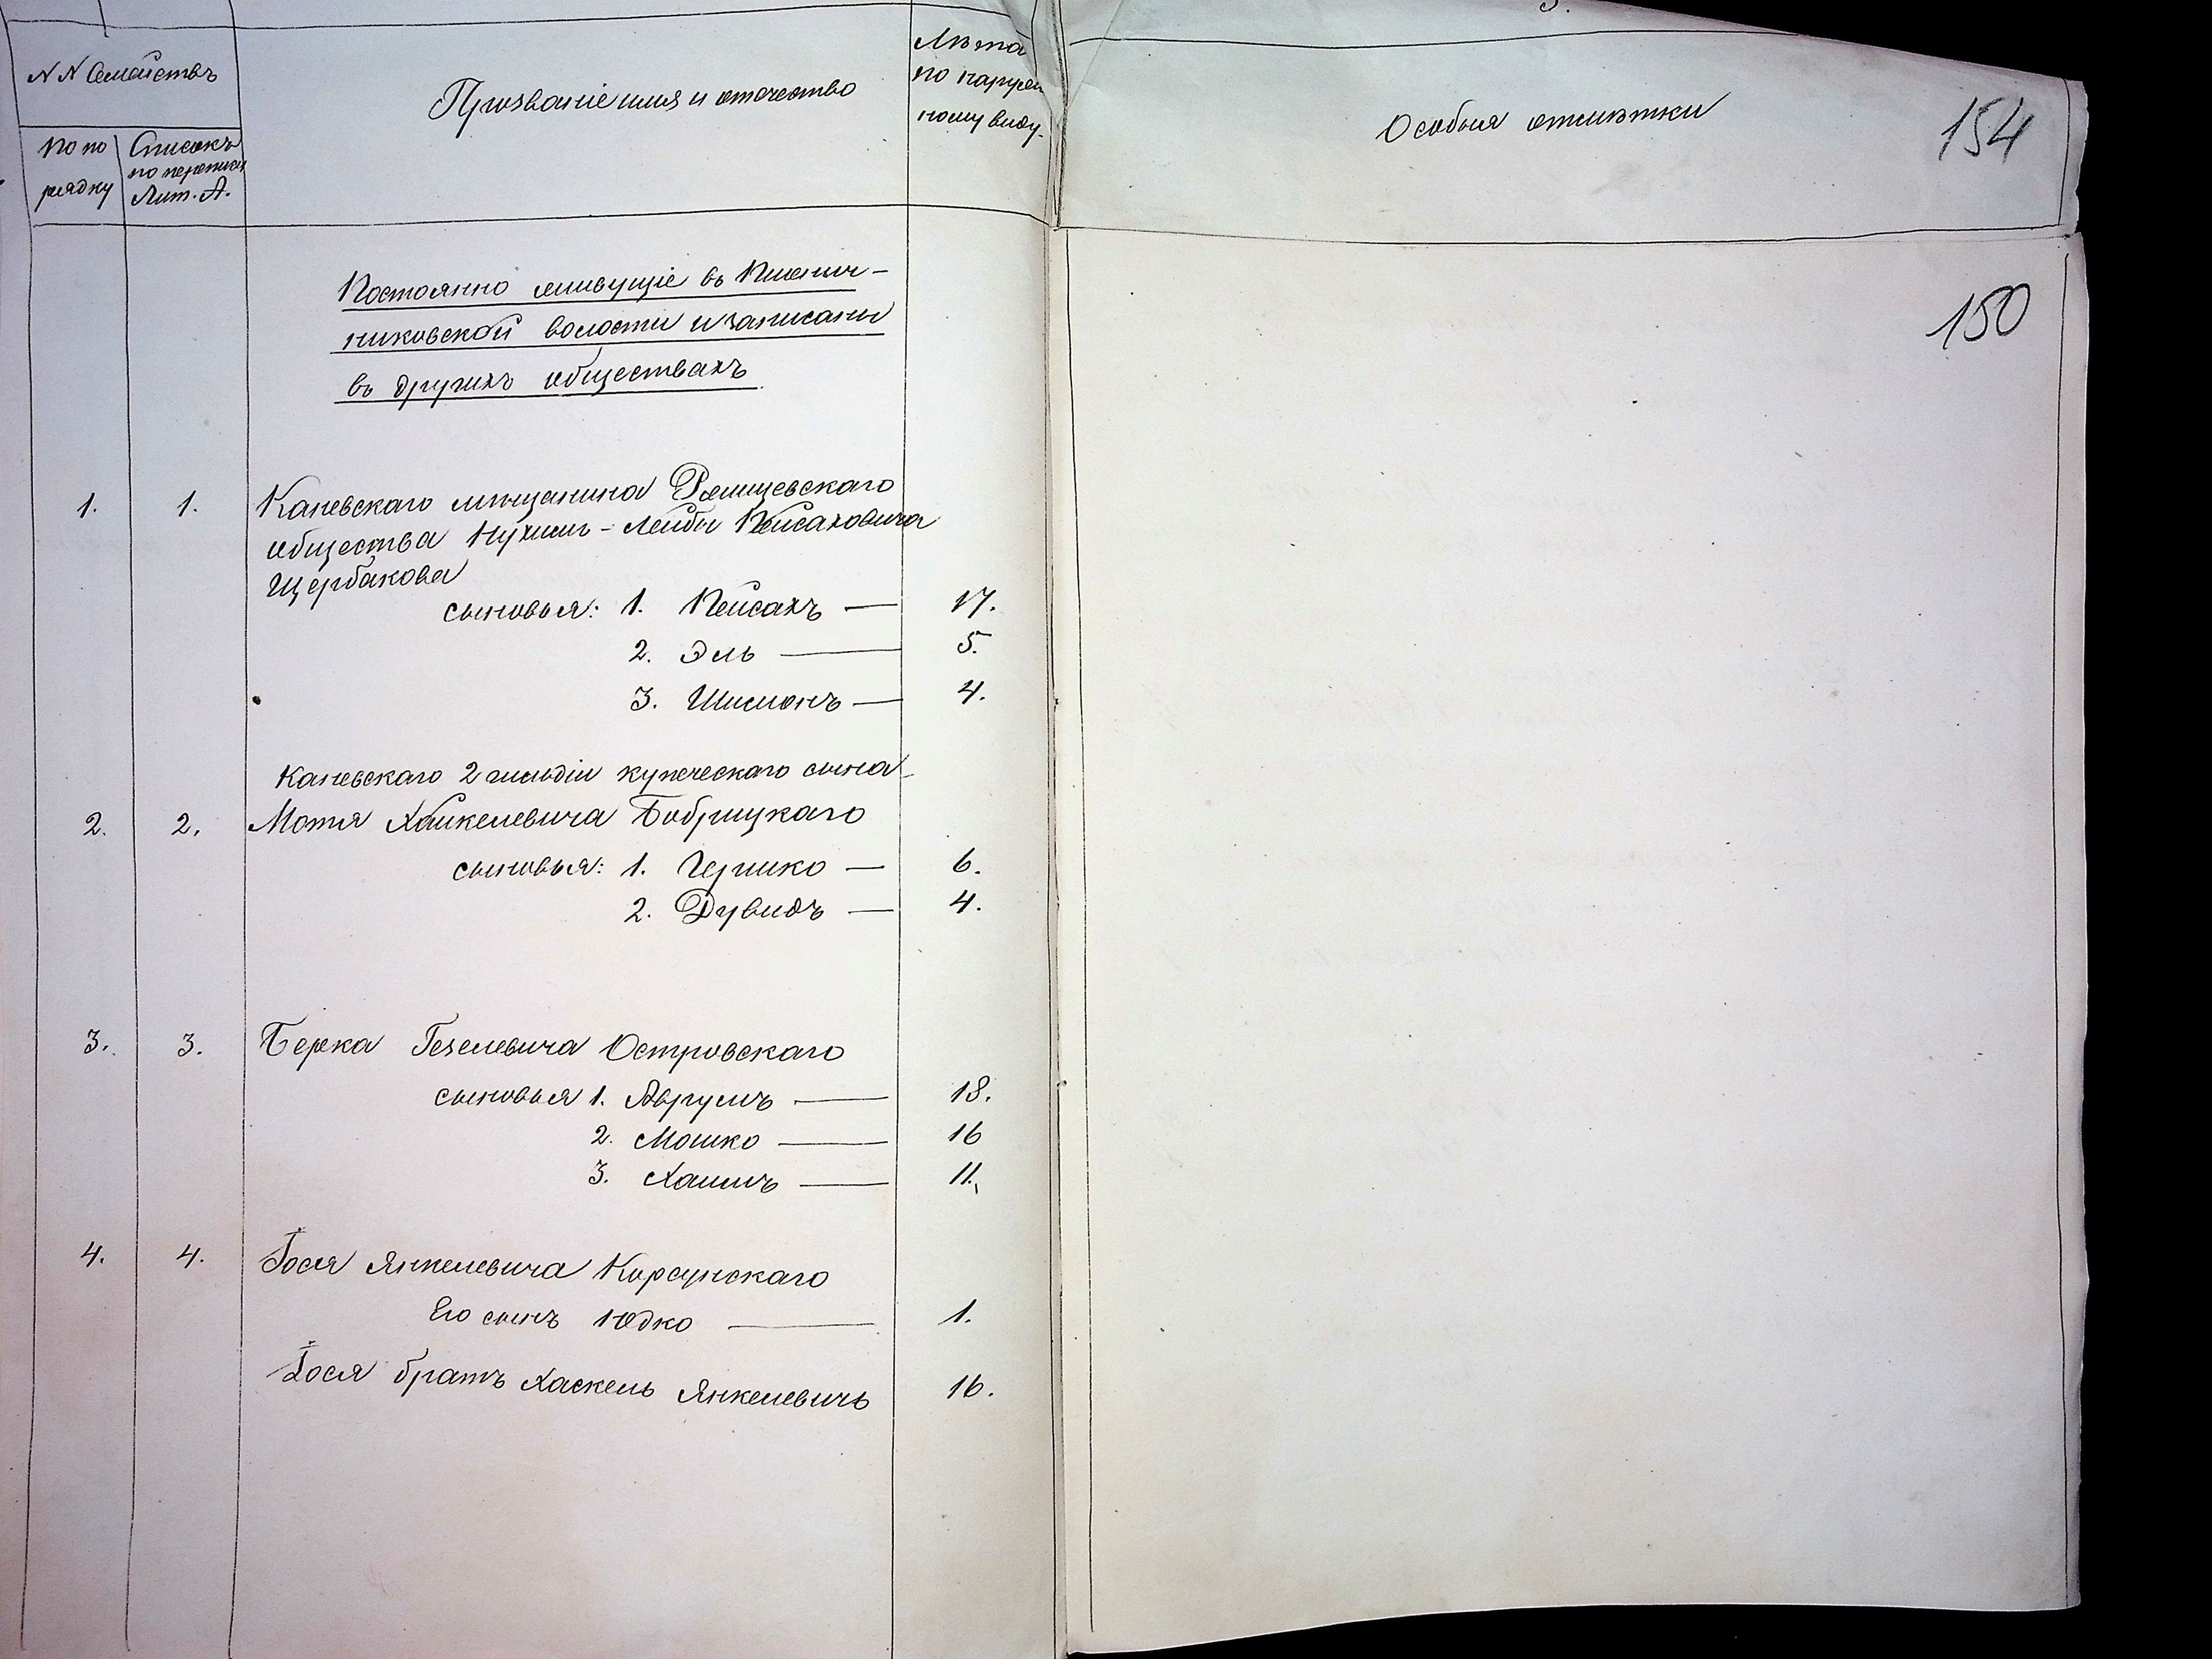 3.
NN Семействъ
По по
рядку
Списокъ
по переписи
Лит. А.
Прозваніе имя и отчество
Лѣта
по наруж
ному виду.
Особыя отмѣтки
154
150
Постоянно живущіе въ Пшенич-
никовской волости и записаны
въ другихъ обществахъ
1. 1. Каневскаго мѣщанина Ржищевскаго
общества Нухимъ-Лейбы Пейсаховича
Щербакова
сыновья: 1. Пейсахъ — 17.
2. Эль — 5.
3. Шимонъ — 4.
Каневскаго 2 гильдіи купеческаго сына
2. 2. Мотя Хаикелевича Бобрицкаго
сыновья: 1. Гершко — 6.
2. Дувидъ — 4.
3. 3. Берка Гезелевича Островскаго
сыновья 1. Аврумъ — 18.
2. Мошко — 16
3. Хаимъ — 11.
4. 4. Іося Янкелевича Корсунскаго
Его сынъ Юдко — 1.
Іося братъ Хаскель Янкелевичь 16.